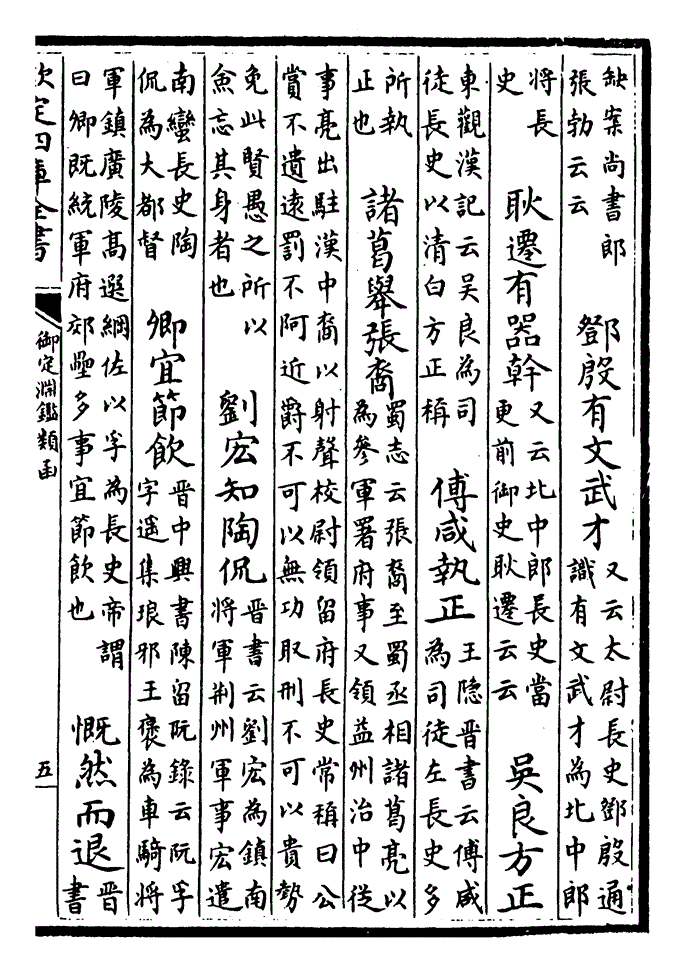 缺案尚書郎張勃云云 鄧殷有文武才 又云太尉長史鄧殷通識有文武才為北中郎
將長史 耿遷有器幹 又云北中郎長史當更前御史耿遷云云 吳良方正
東觀漢記云吳良為司徒長史以清白方正稱 傅咸執正 王隐晉書云傅咸為司徒左長史多
所執正也 諸葛舉張裔 蜀志云張裔至蜀丞相諸葛亮以為參軍署府事又領益州治中從
事亮出駐漢中裔以射聲校尉領留府長史常稱曰公賞不遺逺罰不阿近爵不可以無功取刑不可以貴勢
免此賢愚之所以僉忘其身者也 劉宏知陶侃 晉書云劉宏為鎮南將軍荆州軍事宏遣
南蠻長史陶侃為大都督 卿宜節飲 晉中興書陳留阮錄云阮孚字遥集琅邪王襃為車騎將
軍鎮廣陵髙選綱佐以孚為長史帝謂曰卿既統軍府郊壘多事宜節飲也 慨然而退 晉書
欽定四庫全書 御定淵鑑類函 五